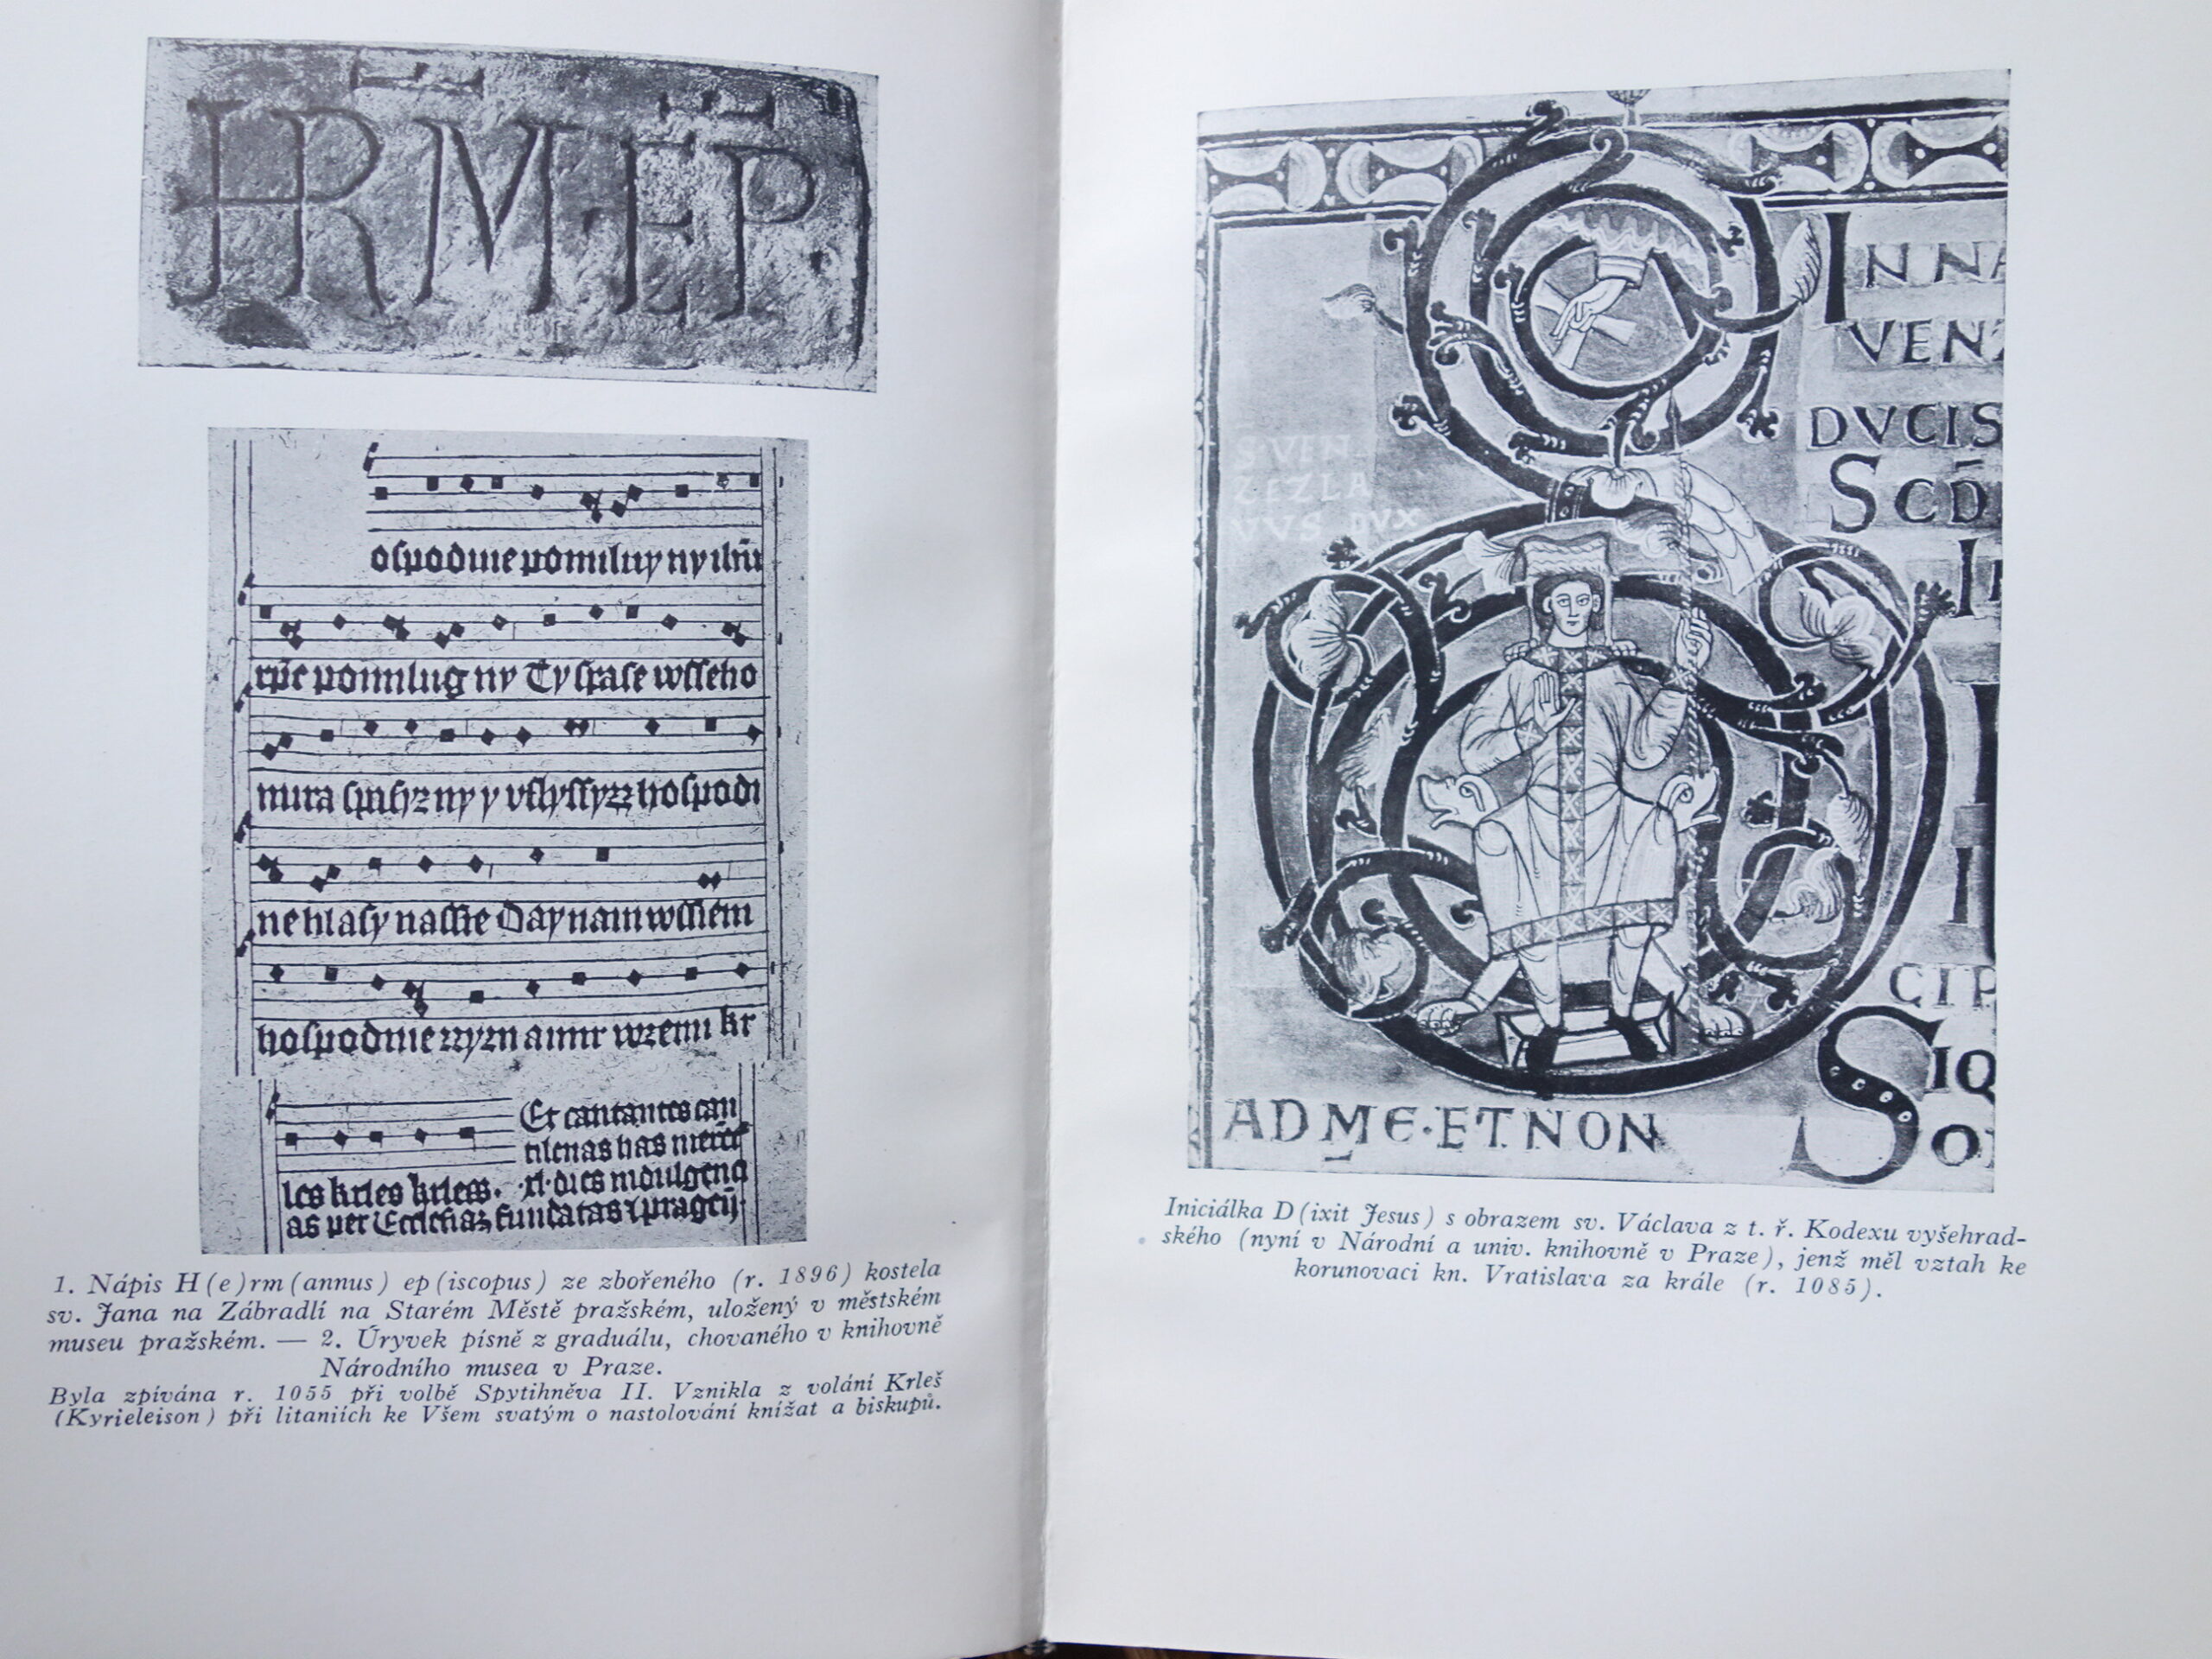 HRM·EP·
ospodine pomiluy ny ihu
xpe pomilug ny Ty spase wsseho
mira spasyz ny y vslyssyzz hospodi
ne hlasy nassie Day nam wssiem
hospodine zzyzn a mir wzemi kr
Et cantantes can
tilenas has meret
xl· dies indulgenci
les krles krless.
as per Ecclesias fundatas i pragen
1. Nápis H(e)rm(annus) ep(iscopus) ze zbořeného (r. 1896) kostela
sv. Jana na Zábradlí na Starém Městě pražském, uložený v městském
museu pražském. — 2. Úryvek písně z graduálu, chovaného v knihovně
Národního musea v Praze.
Byla zpívána r. 1055 při volbě Spytihněva II. Vznikla z volání Krleš
(Kyrieleison) při litaniích ke Všem svatým o nastolování knížat a biskupů.
INNA
VENZ
DVCIS
SCD
S VEN
ZEZLA
VVS DVX
CIP
SIQ
AD ME·ET NON
Iniciálka D(ixit Jesus) s obrazem sv. Václava z t. ř. Kodexu vyšehrad-
ského (nyní v Národní a univ. knihovně v Praze), jenž měl vztah ke
korunovaci kn. Vratislava za krále (r. 1085).